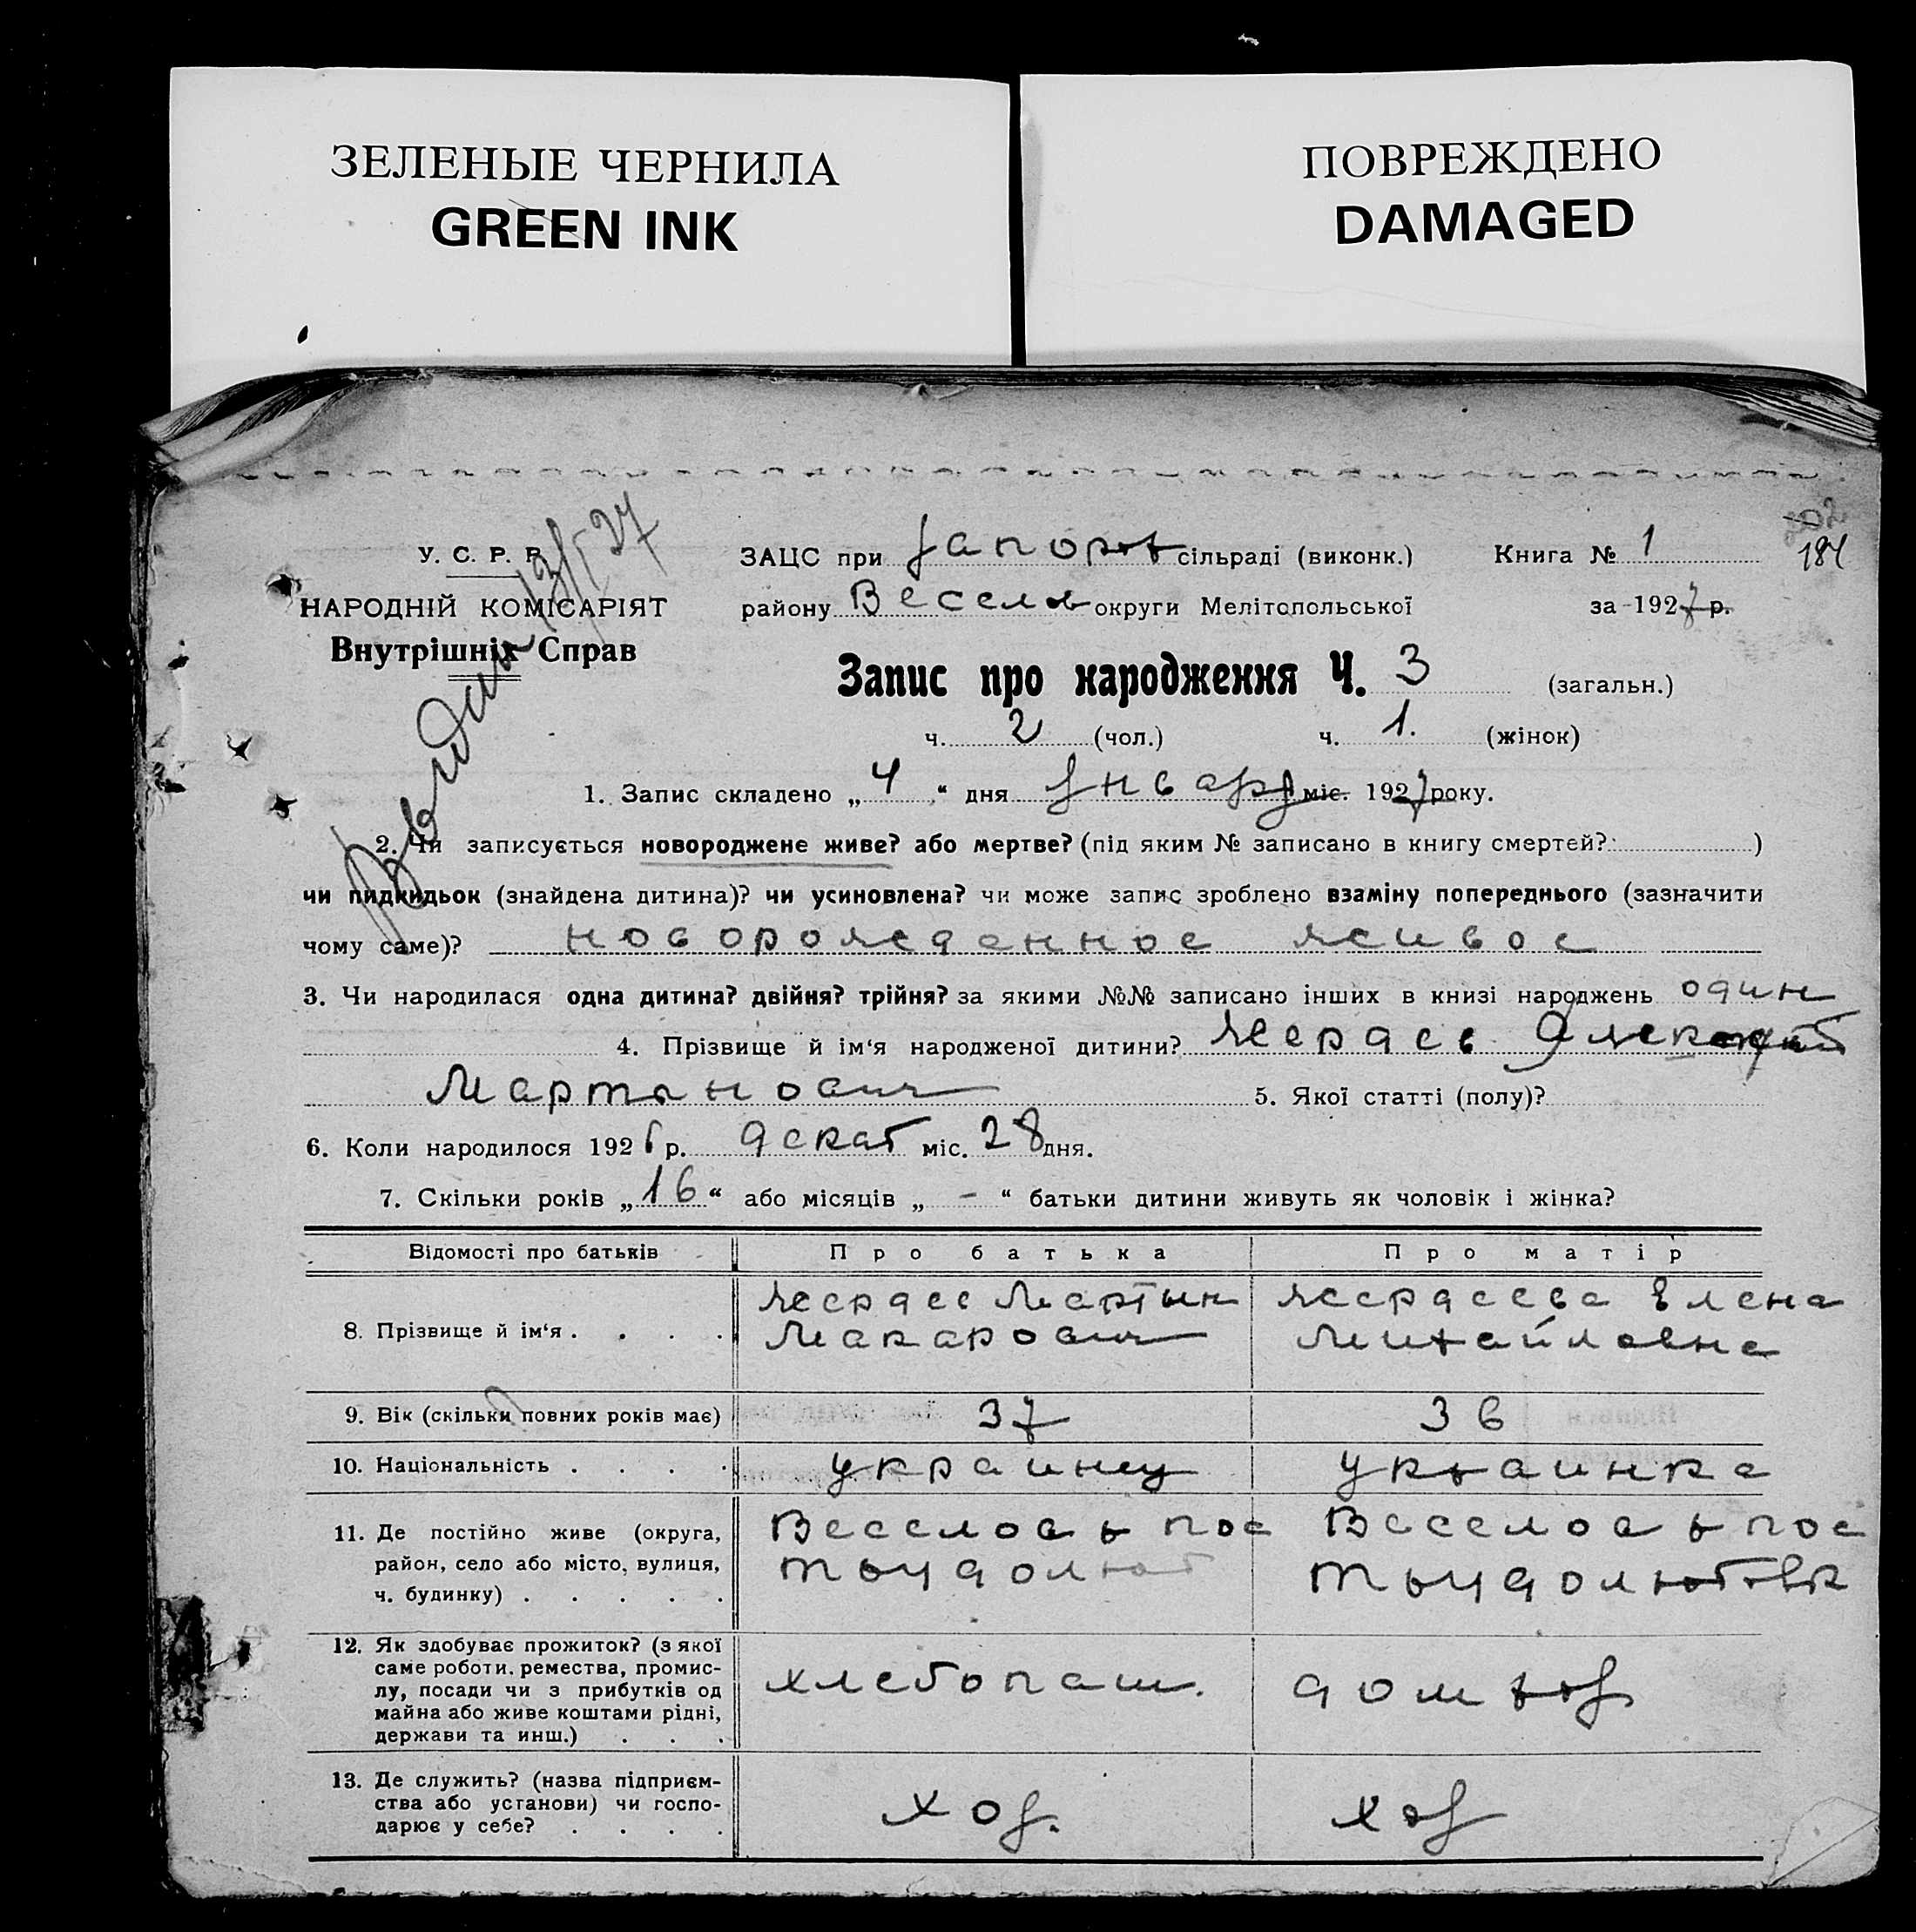 ЗЕЛЕНЫЕ ЧЕРНИЛА
GREEN INK
ПОВРЕЖДЕНО
DAMAGED
У. С. Р. Р.
НАРОДНІЙ КОМІСАРІЯТ
Внутрішніх Справ
13/I 27
ЗАЦС при Запоров сільраді (виконк.) Книга № 1
184
району Веселов округи Мелітопольської за 1927 р.
Запис про народження Ч. 3 (загальн.)
ч. 2 (чол.) ч. 1. (жінок)
1. Запис складено „ 4 “ дня января міс. 1927 року.
2. Чи записується новороджене живе? або мертве? (під яким № записано в книгу смертей? )
чи пидкидьок (знайдена дитина)? чи усиновлена? чи може запис зроблено взаміну попереднього (зазначити
чому саме)? новорожденное живое
3. Чи народилася одна дитина? двійня? трійня? за якими №№ записано інших в книзі народжень один
4. Прізвище й ім‘я народженої дитини? Жердев
Мартынович 5. Якої статті (полу)?
6. Коли народилося 1926 р. декаб міс. 28 дня.
7. Скільки років „ 16 “ або місяців „ - “ батьки дитини живуть як чоловік і жінка?
Відомості про батьків Про батька Про матір
8. Прізвище й ім‘я . . . . Жердев Мартын Жердеева Елена
Макарович Михайловна
9. Вік (скільки повних років має) 37 36
10. Національність . . . . украинец украинка
11. Де постійно живе (округа, Веселов р пос Веселов р пос
район, село або місто, вулиця, трудолюб трудолюбовк
ч. будинку) . . . . .
12. Як здобуває прожиток? (з якої
саме роботи, ремества, промис- хлебопаш. дом хоз
лу, посади чи з прибутків од
майна або живе коштами рідні,
держави та инш.) . . .
13. Де служить? (назва підприєм-
ства або установи) чи госпо- хоз. хоз
дарює у себе? . . . .